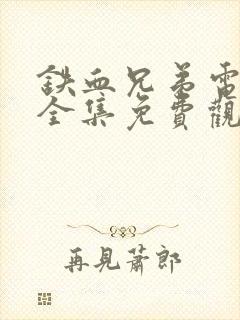 鉄血兄弟電
全集免費觀
再見蕭郎